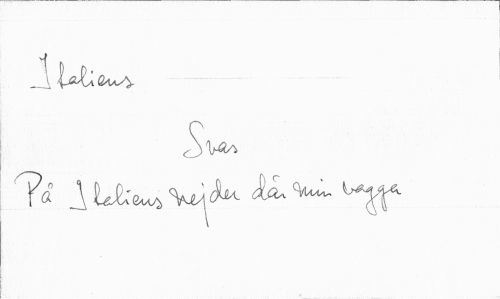 Italiens
Svas
På Italiens nejder där min vagga